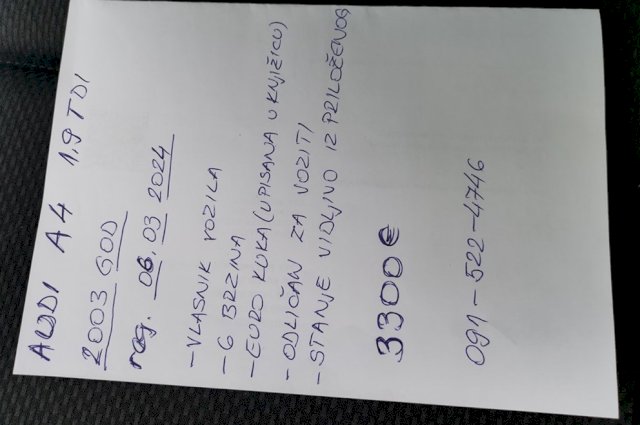 AUDI A4 1.9 TDI
2003 GOD
reg. 06.03 2024
- VLASNIK VOZILA
- 6 BRZINA
- EURO KUKA (UPISANA U KNJIŽICU)
- ODLIČAN ZA VOZITI
- STANJE VIDLJIVO IZ PRILOŽENOG
3300€
091-522-4746